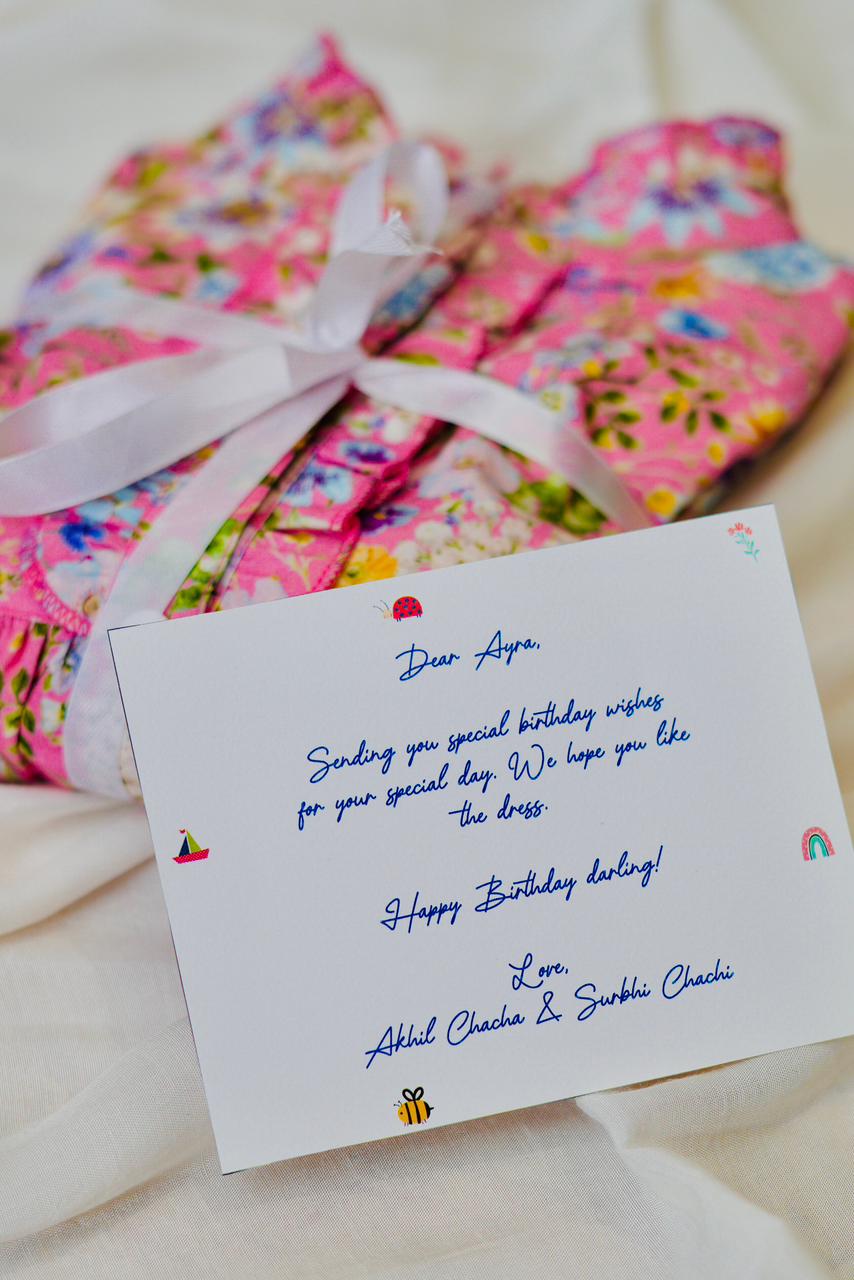 Dear Ayra,
Sending you special birthday wishes
for your special day. We hope you like
the dress.
Happy Birthday darling!
Love,
Akhil Chacha & Surbhi Chachi